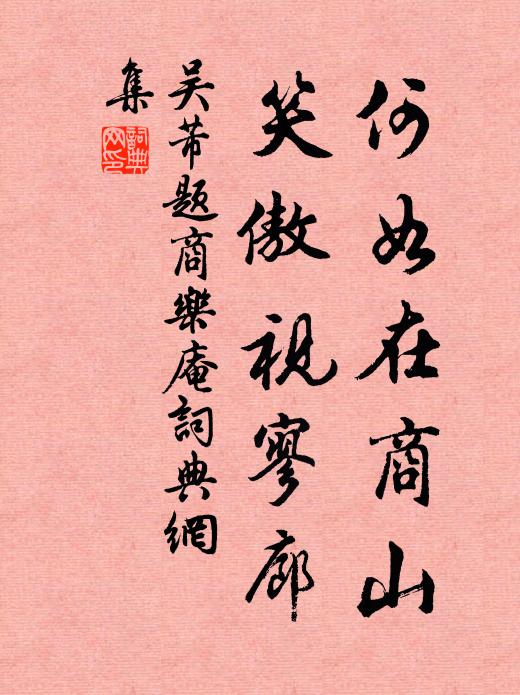 何如在商山
笑傲視寥廓
吳芾題商樂庵詞典網
集
詞典
网印